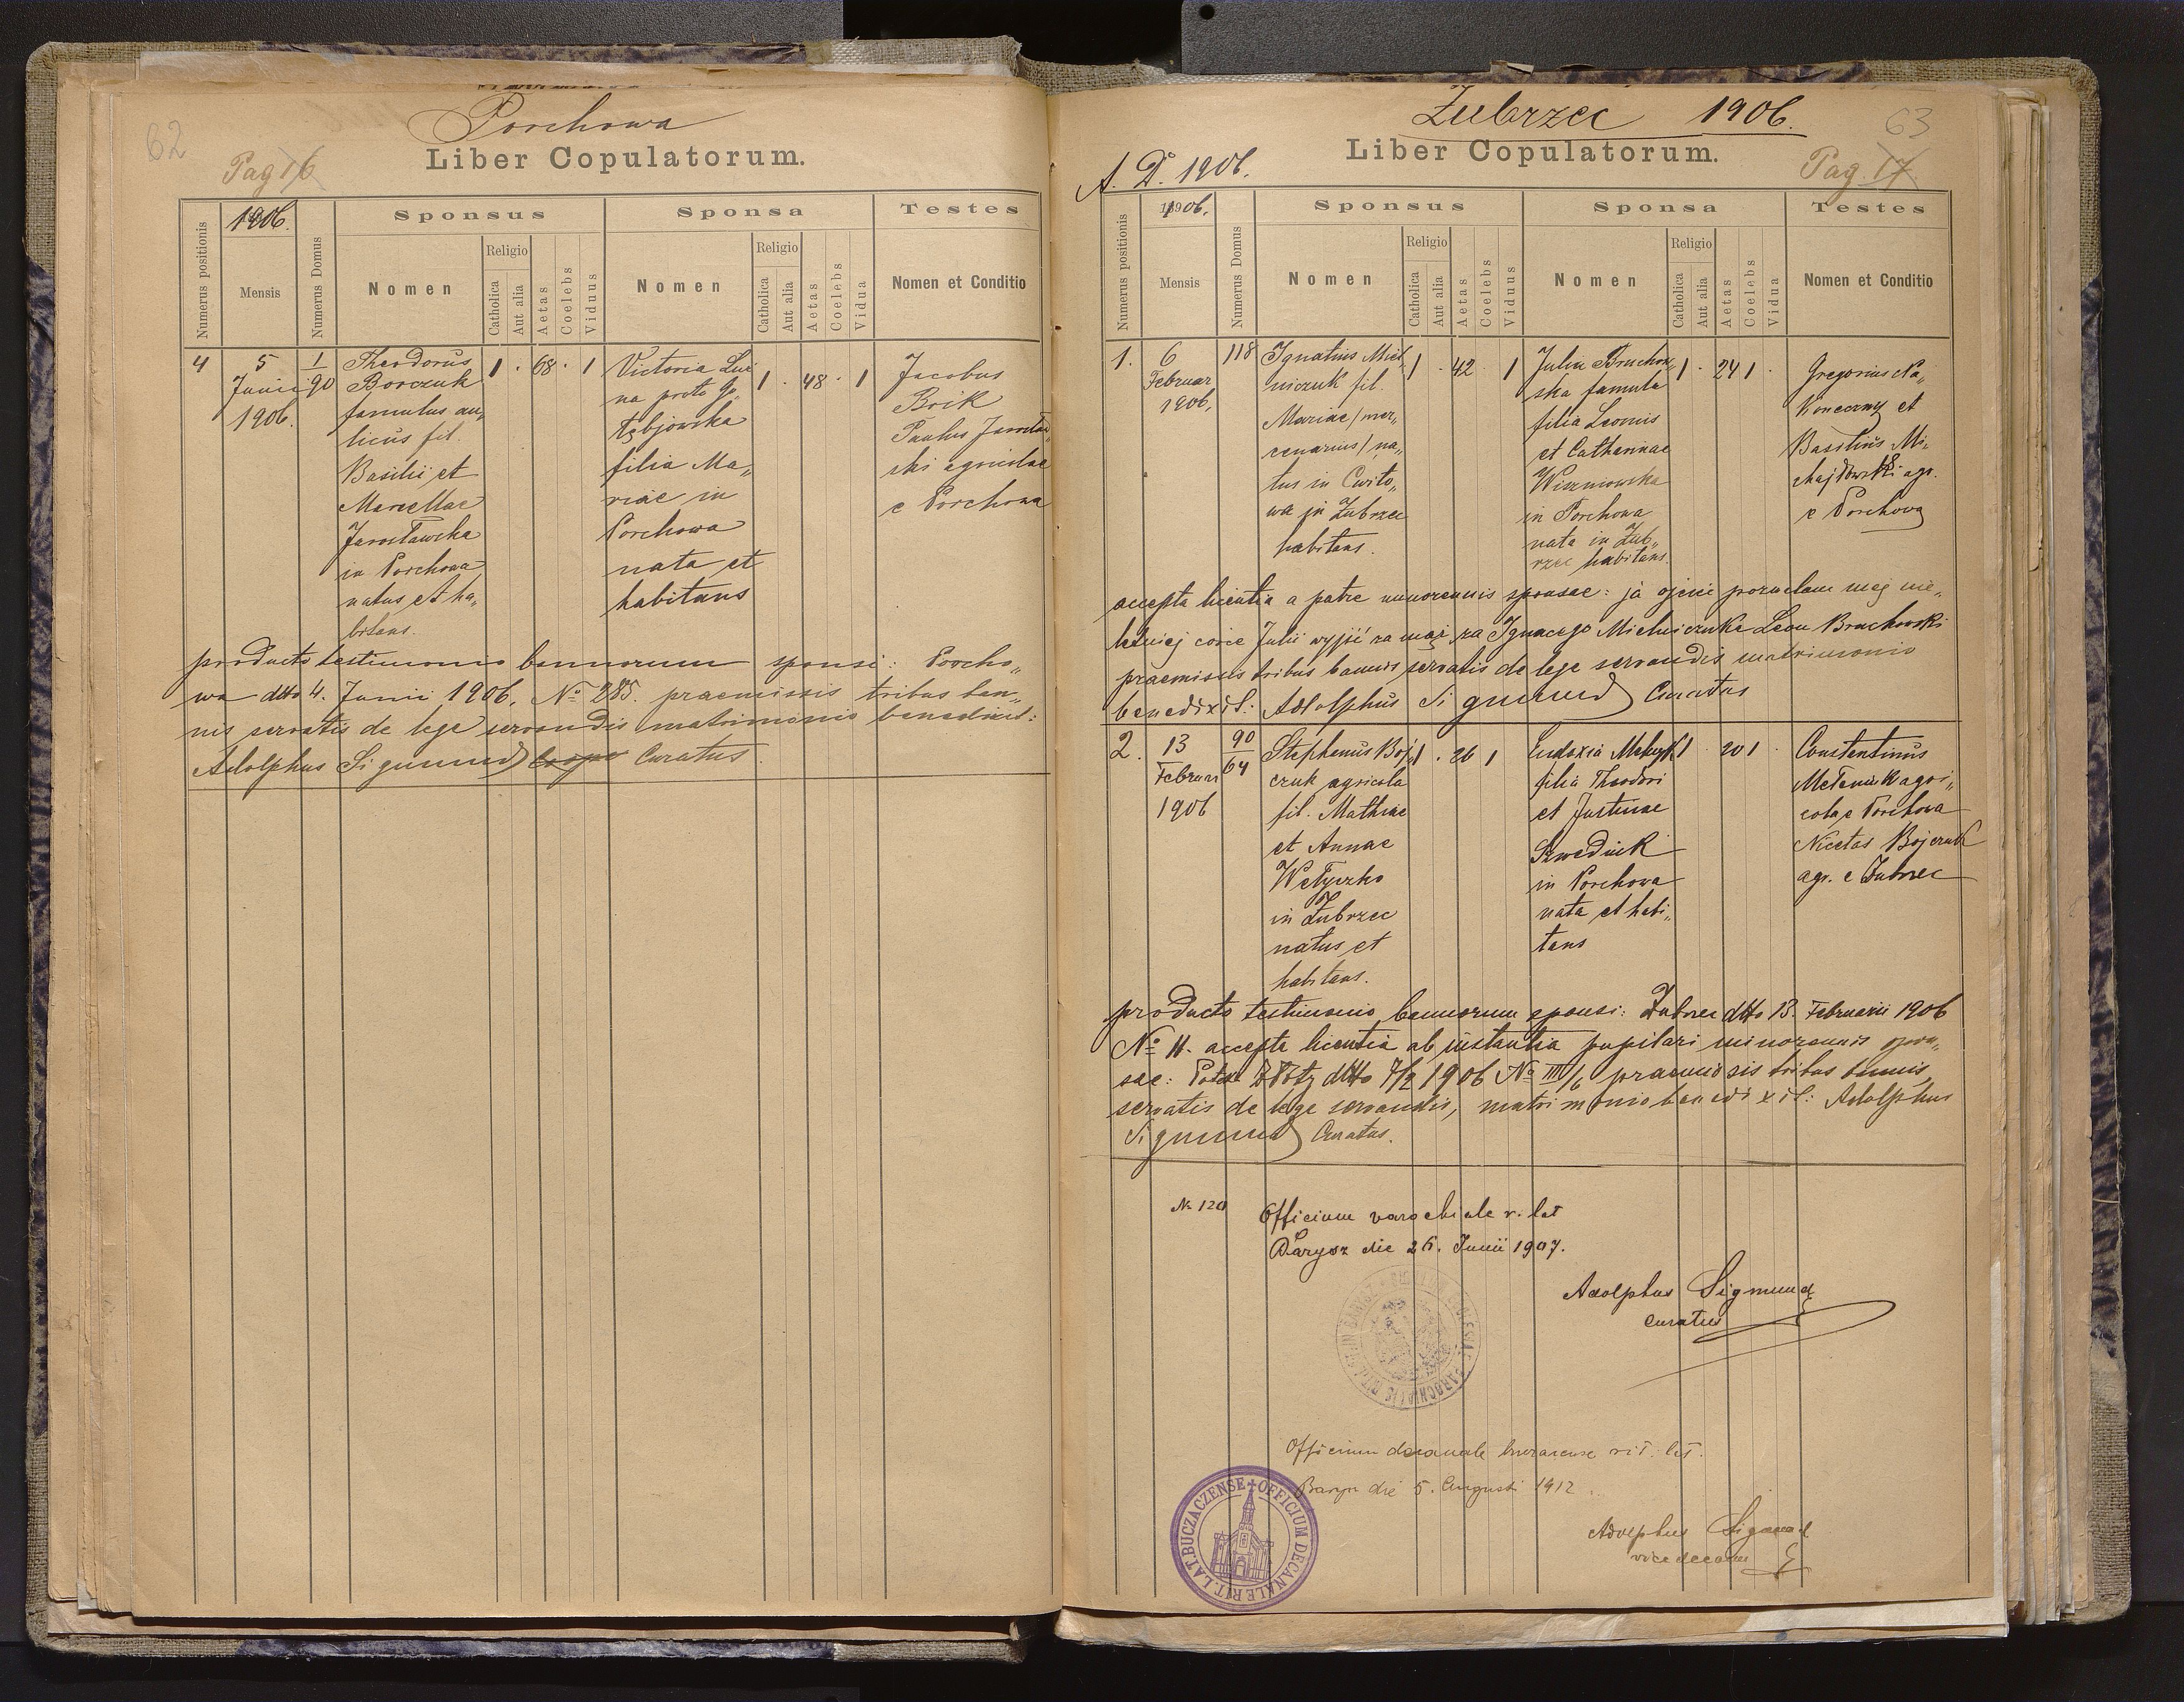 Porchowa
62
Pag 16
Liber Copulatorum.
Numerus positionis
1906.
Mensis
Numerus Domus
Sponsus
Nomen
Religio
Catholica
Aut alia
Aetas
Coelebs
Viduus
Sponsa
Nomen
Religio
Catholica
Aut alia
Aetas
Coelebs
Vidua
Testes
Nomen et Conditio
4
5
Junii
1906.
1
90
Theodorus
Borczuk
famulus au„
licus fil.
Basilii et
Marcellae
Jarosławska
in Porchowa
natus et ha„
bitans.
1 . 68 . 1
Victoria Lui
na proto Go„
łębjowska
filia Ma„
riae in
Porchowa
nata et
habitans
1 . 48 . 1
Jacobus
Brik
Paulus Jarosław„
ski agricolae
e Porchowa
producto testimonio bannorum sponsi: Porcho„
wa dtto 4. Junii 1906. No 285. praemissis tribus ban„
nis servatis de lege servandis matrimonio benedixit:
Adolphus Sigmund Coope Curatus.
Żubrzec 1906.
63
A. D. 1906.
Liber Copulatorum.
Pag. 17
Numerus positionis
1906.
Mensis
Numerus Domus
Sponsus
Nomen
Religio
Catholica
Aut alia
Aetas
Coelebs
Viduus
Sponsa
Nomen
Religio
Catholica
Aut alia
Aetas
Coelebs
Vidua
Testes
Nomen et Conditio
1.
6
Februar
1906.
118
Ignatius Miel„
niczuk fil.
Mariae /mer„
cenarius/ na„
tus in Cwito„
wa in Żubrzec
habitans.
1 . 42 . 1
Julia Bruchow„
ska famula
filia Leonis
et Catharinae
Wiszniowska
in Porchowa
nata in Żub„
rzec habitans.
1 . 24 1 .
Gregorius Na„
koneczny et
Basilius Mi„
chajłowski agr.
e Porchowa
accepta licentia a patre minorennis sponsae: ja ojciec pozwalam mej nie„
letniej córce Julii wyjść za mąż za Ignacego Mielniczuka Leon Bruchowski
praemissis tribus bannis servatis de lege servandis matrimonio
benedixit: Adolphus Sigmund Curatus
2.
13
Februar
1906
90
64
Stephanus Boj„
czuk agricola
fil. Mathiae
et Annae
Wełyczko
in Żubrzec
natus et
habitans.
1 . 26 1
Eudoxia
filia Theodori
et Justinae
Szwediuk
in Porchowa
nata et habi„
tans
1 . 20 1 .
Constantinus
Mełeniuk agri„
cola e Porchowa
Nicetas Bojczuk
agr. e Żubrzec
producto testimonio bannorum sponsi: Żubrzec dtto 13. Februarii 1906
No 11. accepta licentia ab instantia pupilari minorennis spon„
sae: Potok Złoty dtto 7/2 1906 No III/6 praemissis tribus bannis,
servatis de lege servandis, matrimonio benedixit: Adolphus
Sigmund Curatus.
No 120
Officium parochiale r. lat
Barysz die 26. Junii 1907.
Adolphus Sigmund
curatus
Officium decanale buczacense rit. lat.
Barysz die 5. Augusti 1912
Adolphus Sigmund
vicedecanus
OFFICIUM DECANALE RIT. LAT. BUCZACZENSE